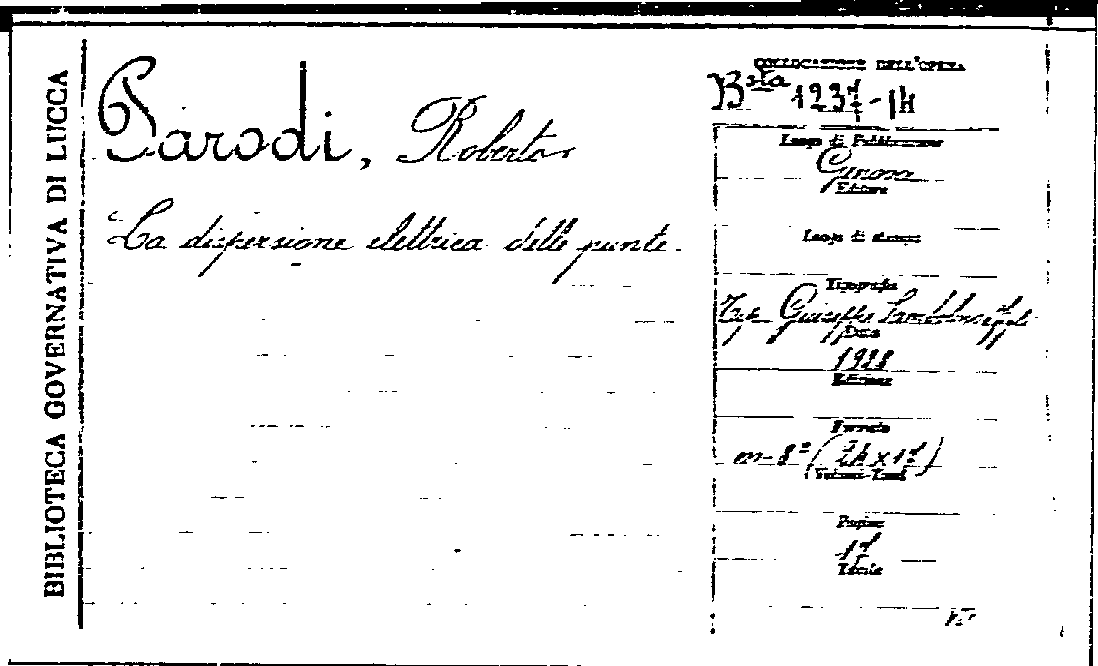 BIBLIOTECA GOVERNATIVA DI LUCCA
Parodi, Roberto
La dispersione elettrica delle punte.
COLLOCAZIONE DELL'OPERA
Bsta 1237-14
Luogo di Pubblicazione
Genova
Editore
Luogo di stampa
Tipografia
Tip. Giuseppe
Data
1928
Edizione
Formato
in-8° (24x17)
Volumi-Tomi
Pagine
17
Tavole